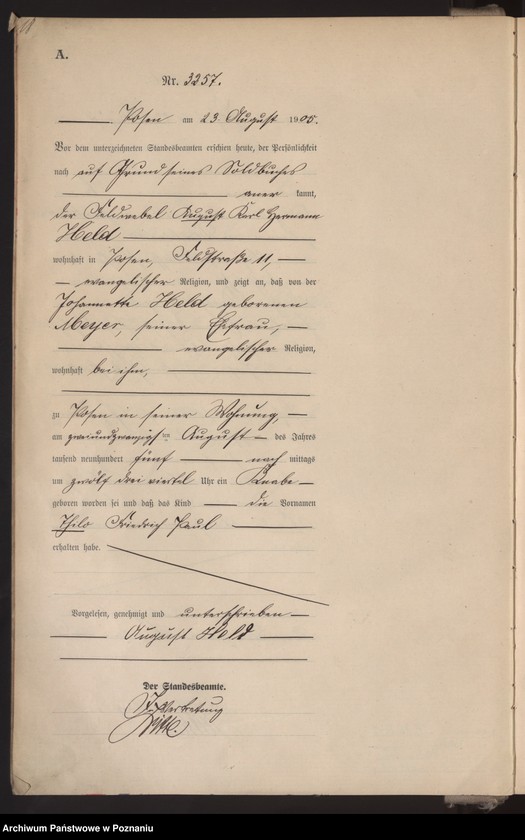 A.
Nr. 3257.
Posen am 23 August 1905.
Vor dem unterzeichneten Standesbeamten erschien heute, der Persönlichkeit
nach auf Grund seines Soldbuches
aner kannt,
der Feldwebel August Karl Hermann
Held
wohnhaft in Posen, Feldstraße 11,
evangelischer Religion, und zeigt an, daß von der
Johannette Held geborenen
Meyer, seiner Ehefrau,
evangelischer Religion,
wohnhaft bei ihm,
zu Posen in seiner Wohnung,
am zweiundzwanzigsten August des Jahres
tausend neunhundert fünf nach mittags
um zwölf drei viertel Uhr ein Knabe
geboren worden sei und daß das Kind die Vornamen
Thilo Friedrich Paul
erhalten habe.
Vorgelesen, genehmigt und unterschrieben
August Held
Der Standesbeamte.
In Vertretung
Archiwum Państwowe w Poznaniu